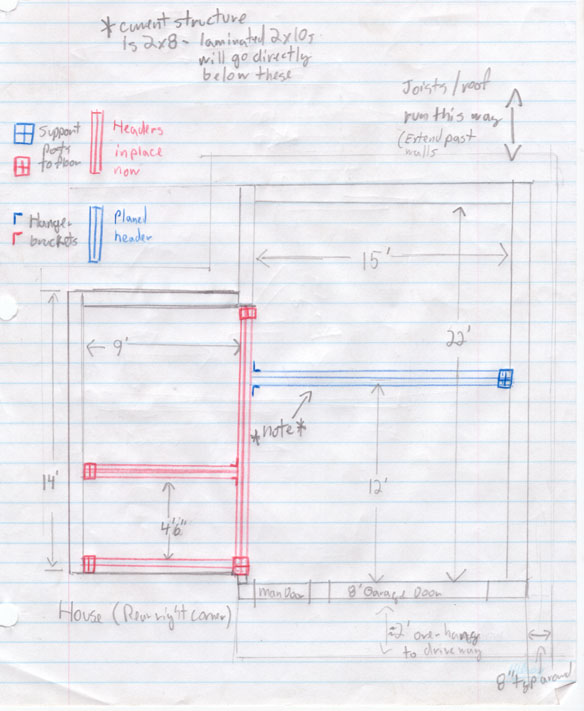 * current structure
Is 2x8 - laminated 2x10s
will go directly
below these
Joists/roof
run this way
(Extend past
walls
Support
Posts
to floor
Headers
in place
now
Hanger
brackets
Planed
header
15'
22'
9'
*note*
14'
12'
4'6"
Man Door
8' Garage Door
House (Rear right corner)
≈2' over-hang
to driveway
8" typ around